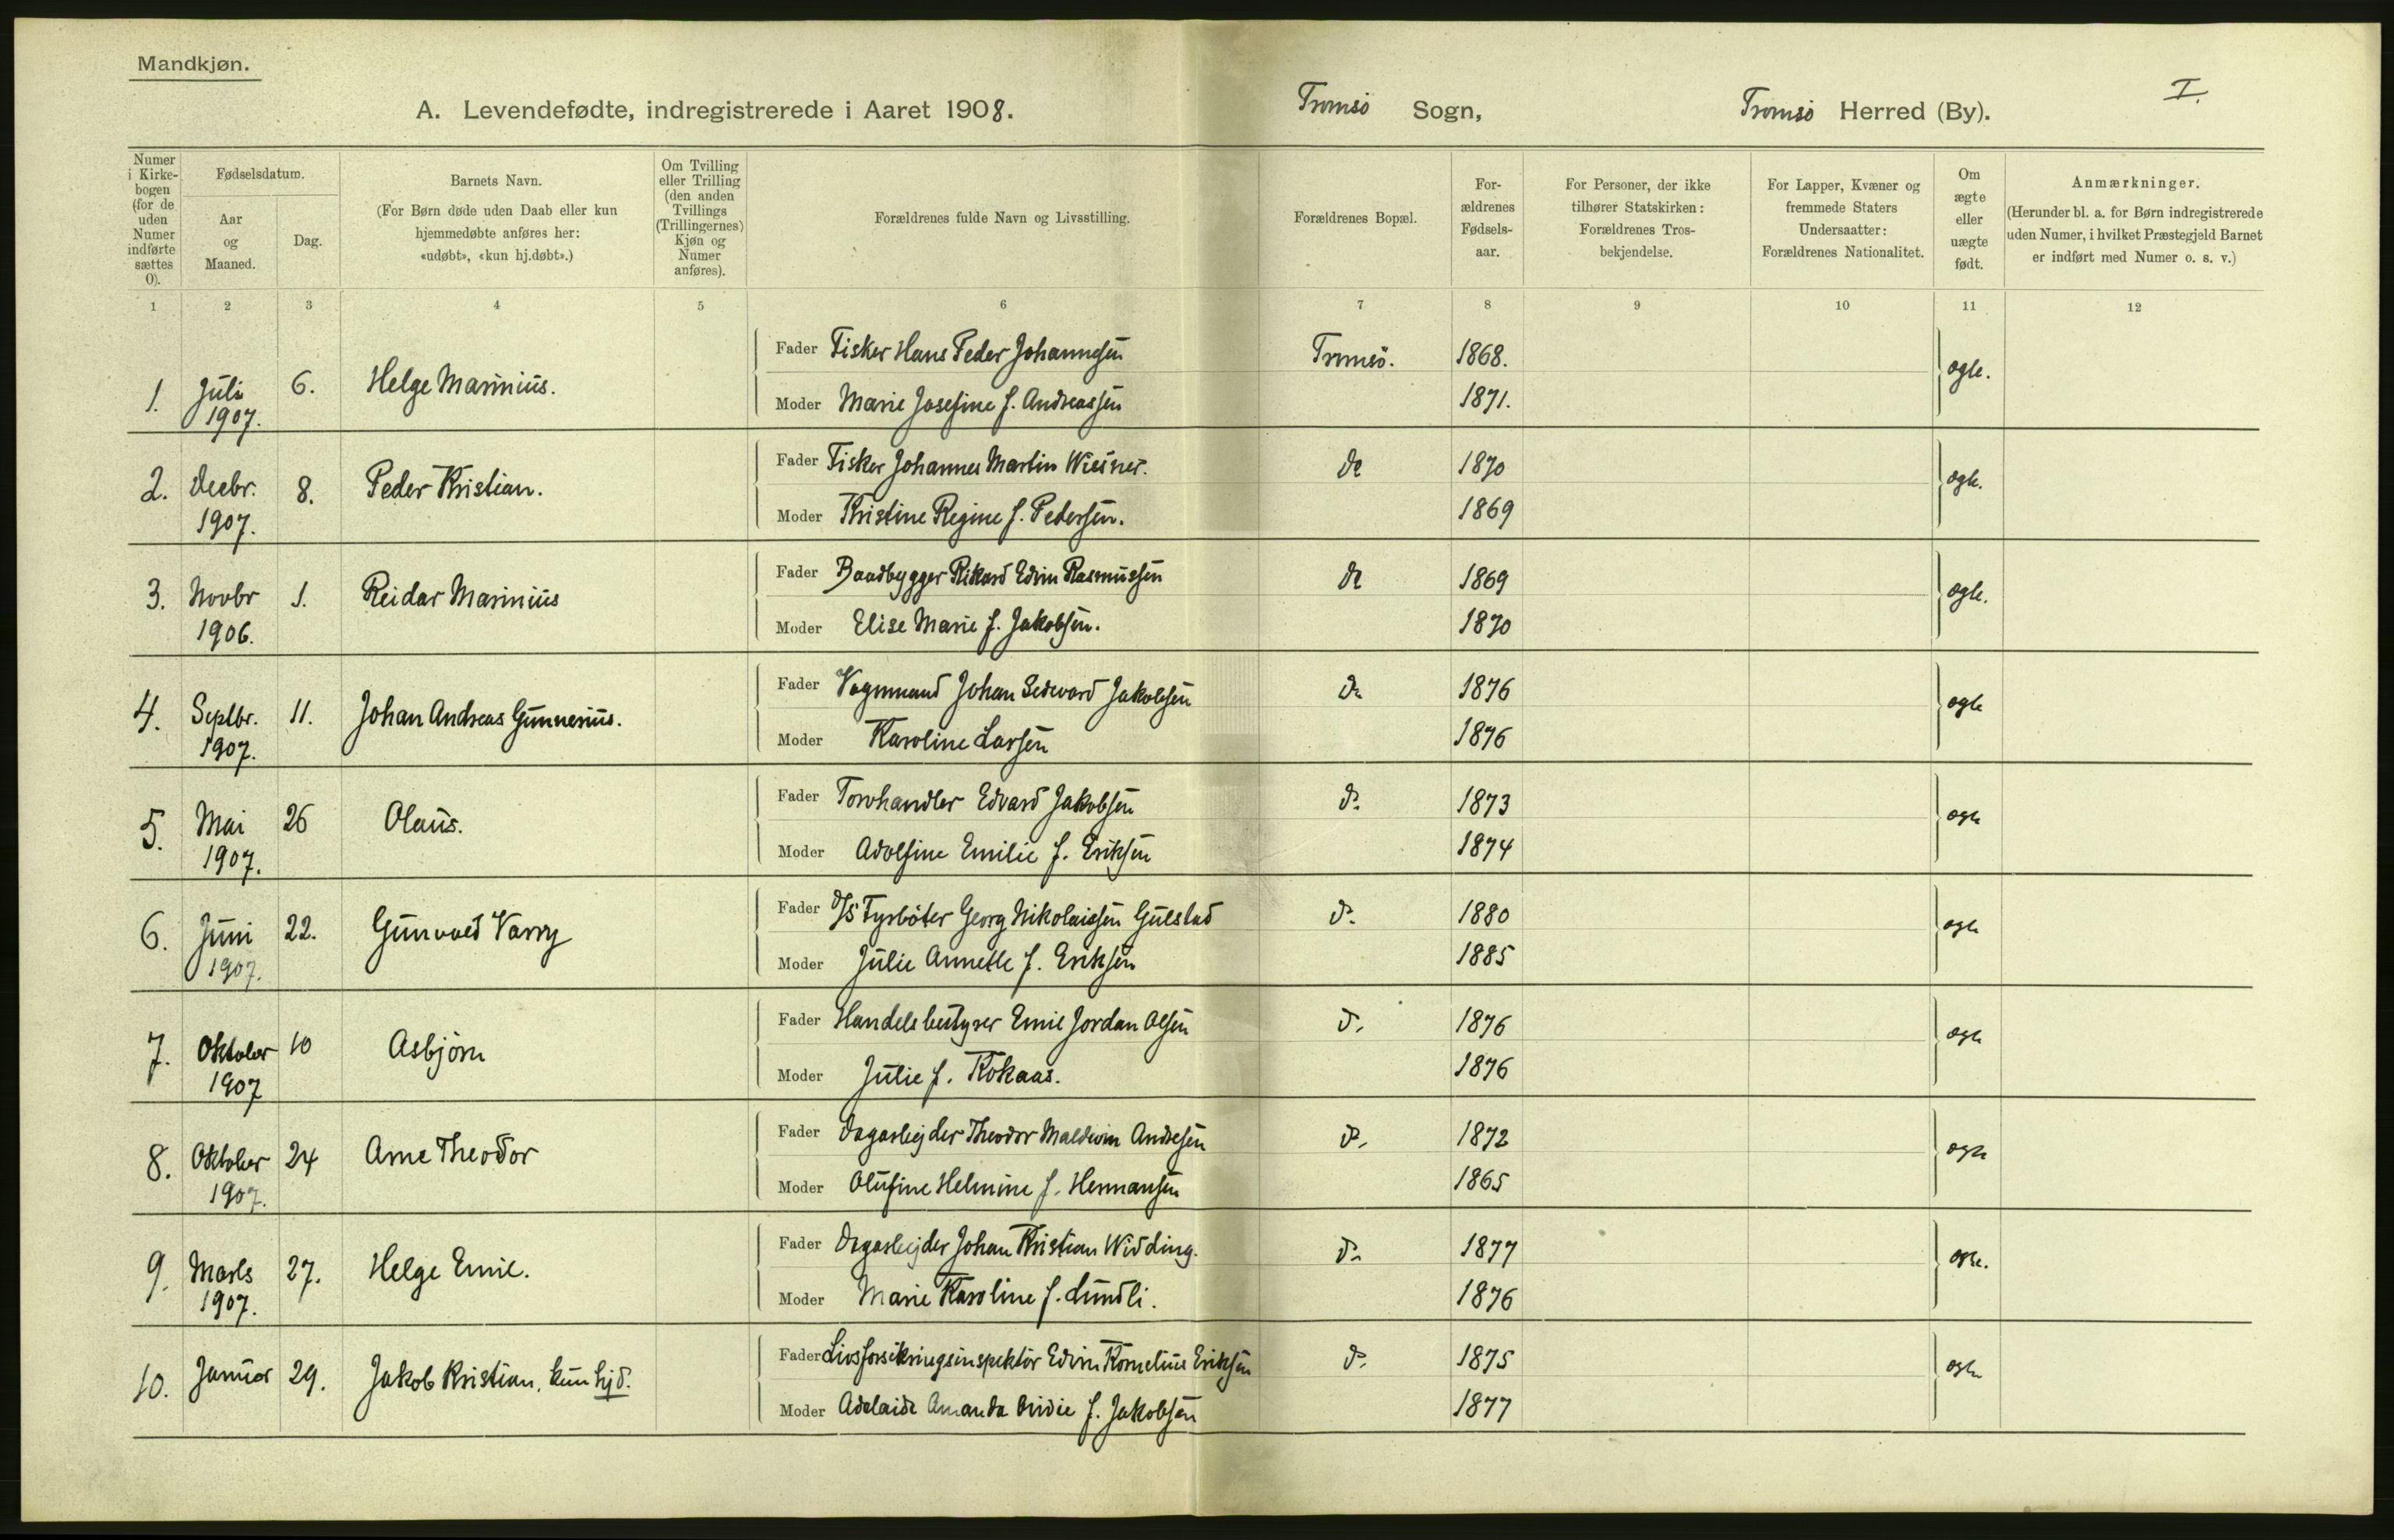 Mandkjøn.
A. Levendefødte, indregistrerede i Aaret 1908. Tromsö Sogn, Tromsö Herred (By). I.
Numer i Kirkebogen (for de uden Numer indførte sættes 0).
Fødselsdatum.
Aar og Maaned.
Dag.
Barnets Navn.
(For Børn døde uden Daab eller kun
hjemmedøbte anføres her:
«udøbt», «kun hj.døbt».)
Om Tvilling
eller Trilling
(den anden
Tvillings
(Trillingernes)
Kjøn og
Numer
anføres).
Forældrenes fulde Navn og Livsstilling.
Forældrenes Bopæl.
For-
ældrenes
Fødsels-
aar.
For Personer, der ikke
tilhører Statskirken:
Forældrenes Tros-
bekjendelse.
For Lapper, Kvæner og
fremmede Staters
Undersaatter:
Forældrenes Nationalitet.
Om
ægte
eller
uægte
født.
Anmærkninger.
(Herunder bl. a. for Børn indregistrerede
uden Numer, i hvilket Præstegjeld Barnet
er indført med Numer o. s. v.)
1 2 3 4 5 6 7 8 9 10 11 12
Fader Fisker Hans Peder Johannesen Tromsö. 1868.
1. Juli 6. Helge Marinius. ægte.
1907. Moder Marie Josefine f. Andreassen 1871.
Fader Fisker Johannes Martin Wiesner. do 1870
2. Decbr. 8. Peder Kristian. ægte.
1907. Moder Kristine Regine f. Pedersen. 1869
Fader Baadbygger Rikard Edvin Rasmussen do 1869
3. Novbr 1. Reidar Marinius ægte.
1906. Moder Elise Marie f. Jakobsen. 1870
Fader Vognmand Johan Sedevard Jakobsen do 1876
4. Septbr. 11. Johan Andreas Gunnerius. ægte
1907. Moder Karoline Larsen 1876
Fader Torvhandler Edvard Jakobsen do 1873
5. Mai 26 Olaus. ægte
1907. Moder Adolfine Emilie f. Eriksen 1874
Fader D/S Fyrböter Georg Nikolaisen Gulstad do 1880
6. Juni 22. Gunvald Varry ægte
1907. Moder Julie Annette f. Eriksen 1885
Fader Handelsbestyrer Emil Jordan Olsen do 1876
7. Oktober 10 Asbjörn ægte
1907 Moder Julie f. Kokaas. 1876
Fader Dagarbejder Theodor Maldevin Andresen do 1872
8. Oktober 24 Arne Theodor ægte
1907. Moder Olufine Helmine f. Hermansen 1865
Fader Dagarbejder Johan Kristian Widding. do 1877
9. Marts 27. Helge Emil. ægte.
1907. Moder Marie Karoline f. Lundli. 1876
Fader Livsforsikringsinspektör Edvin Kornelius Eriksen do 1875
10. Januar 29. Jakob Kristian, kun hjd. ægte
Moder Adelaide Amanda Ovidie f. Jakobsen 1877